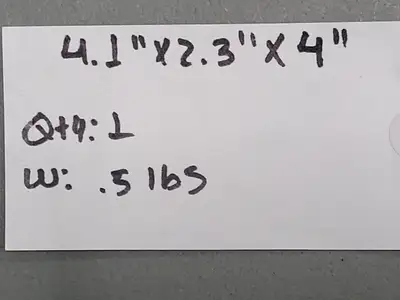 4.1" x 2.3" x 4"
Qty: 1
W: .5 lbs